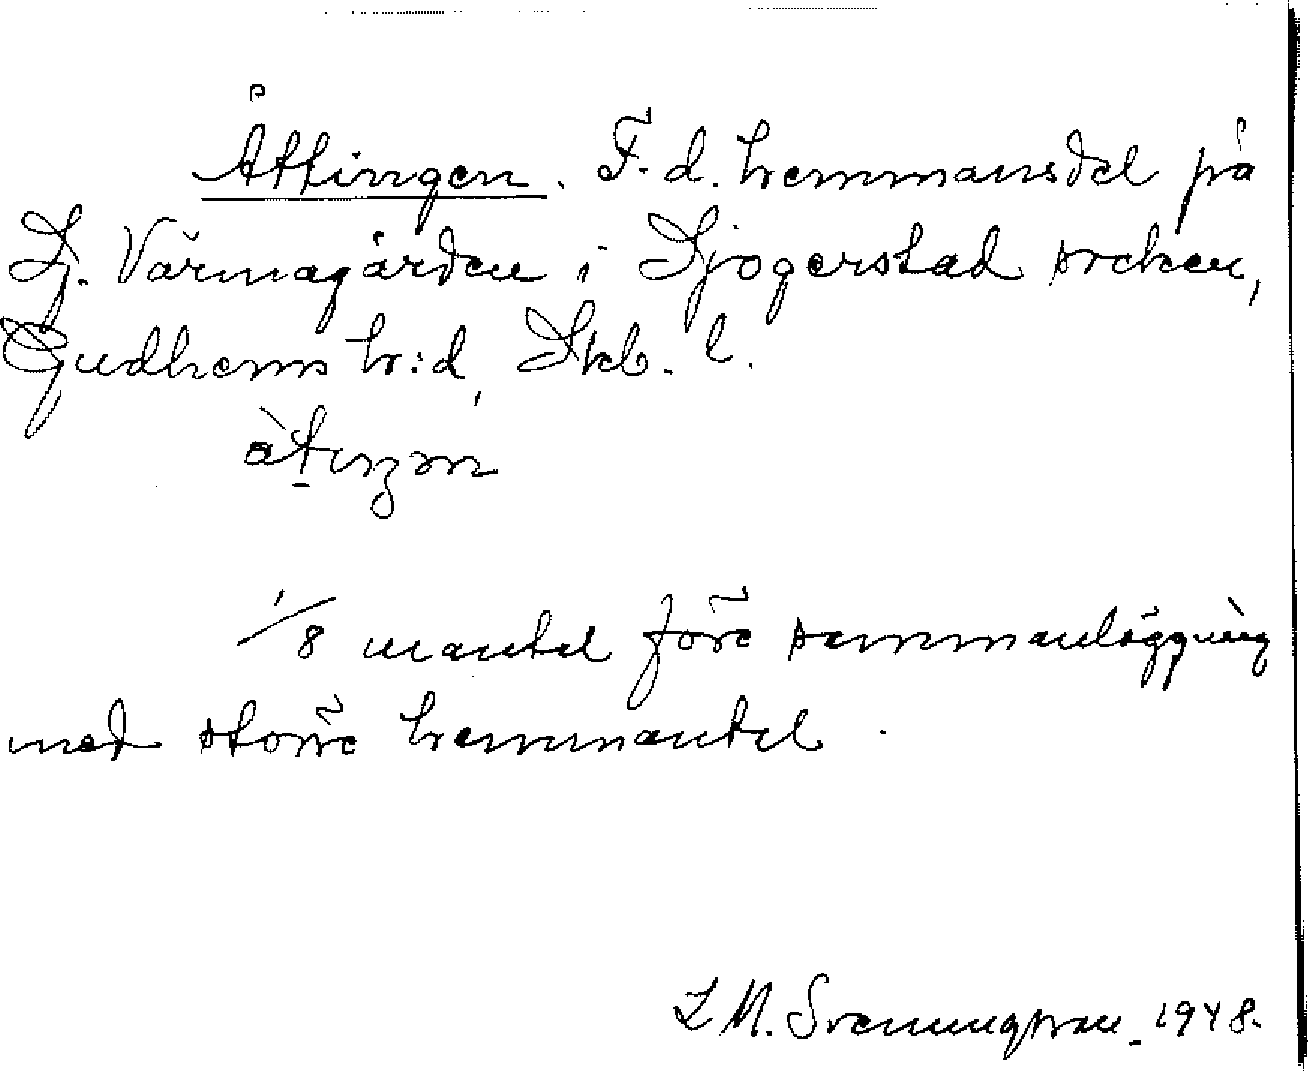 Åttingen. F. d. hemmansdel på
Lj. Värmagården i Sjogerstad socken,
Gudhems hr:d, Skb. l.
åtingen
1/8 mantel före sammanläggning
med större hemmantel.
L M. Svenungsson 1948.